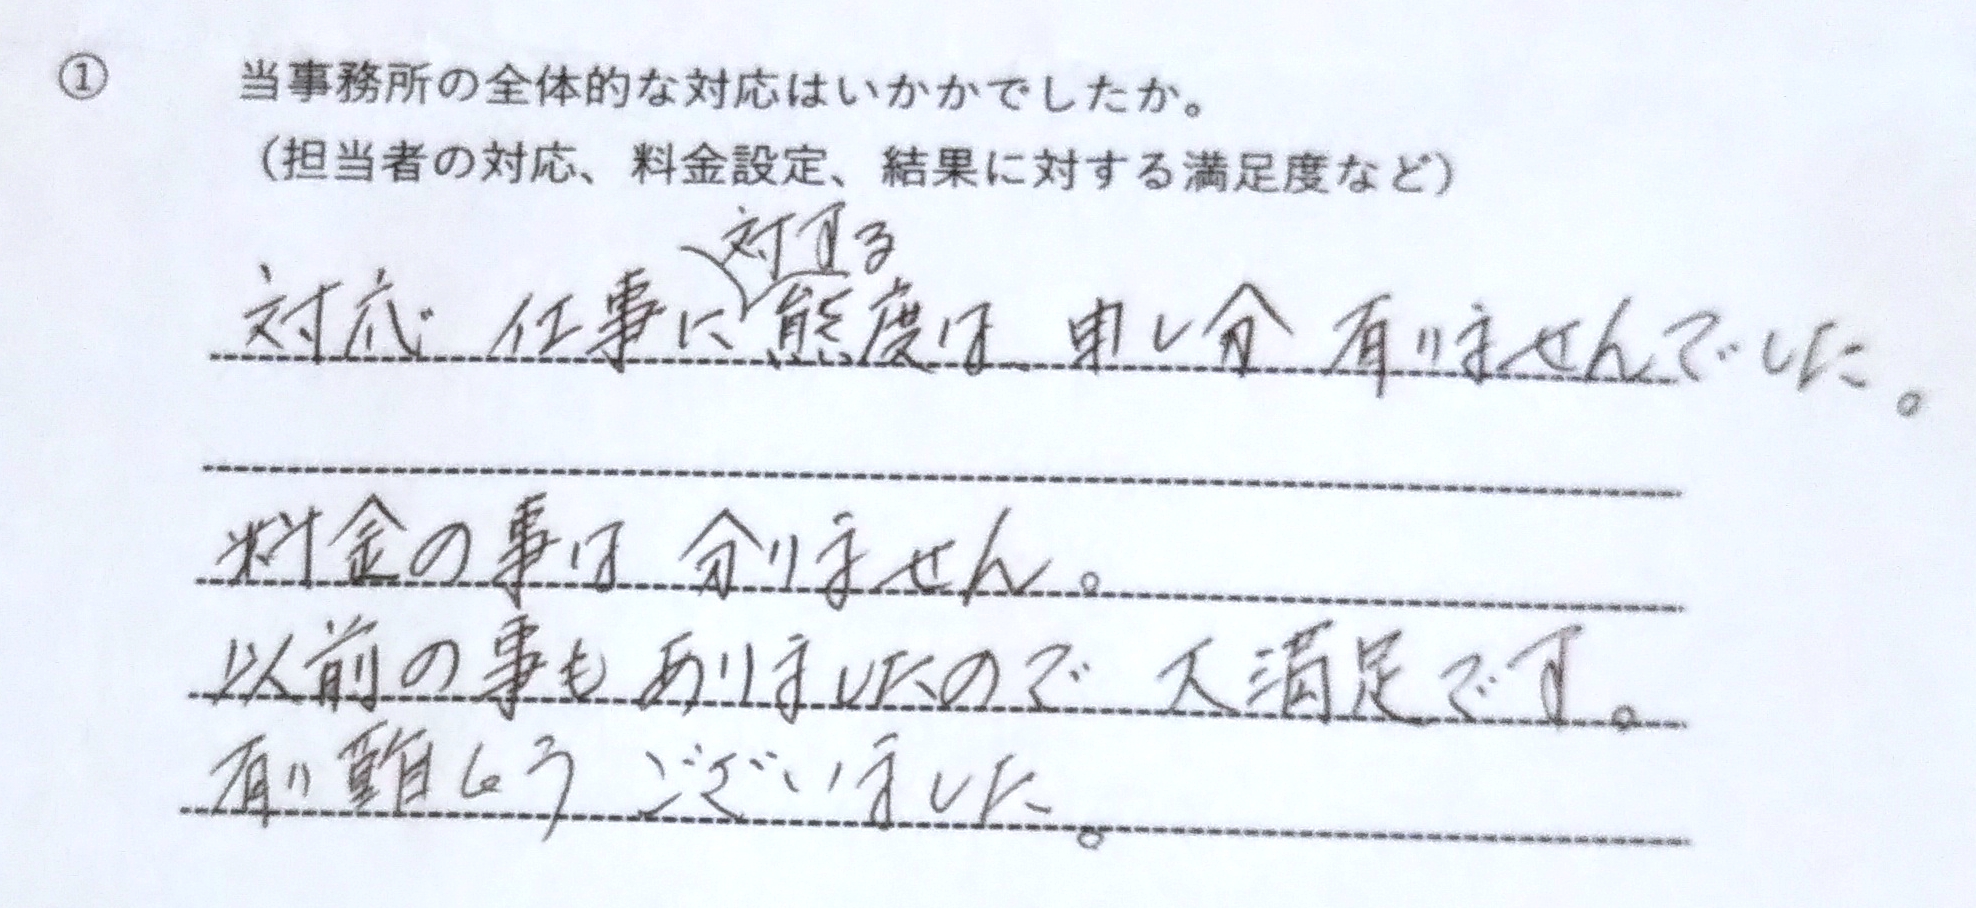 ① 当事務所の全体的な対応はいかかでしたか。
（担当者の対応、料金設定、結果に対する満足度など）
対応 仕事に対する態度は 申し分 有りませんでした。
料金の事は 分りません。
以前の事も ありましたので 大満足です。
有り難とう ございました。